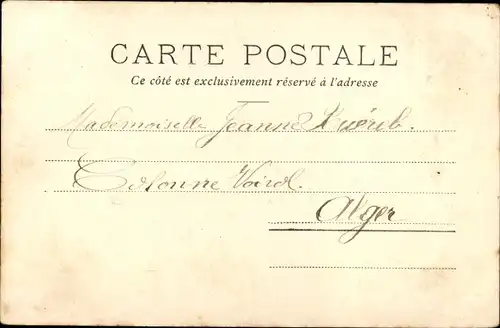 CARTE POSTALE
Ce côté est exclusivement réservé à l'adresse
Mademoiselle Jeanne
Colonne Voirol.
Alger